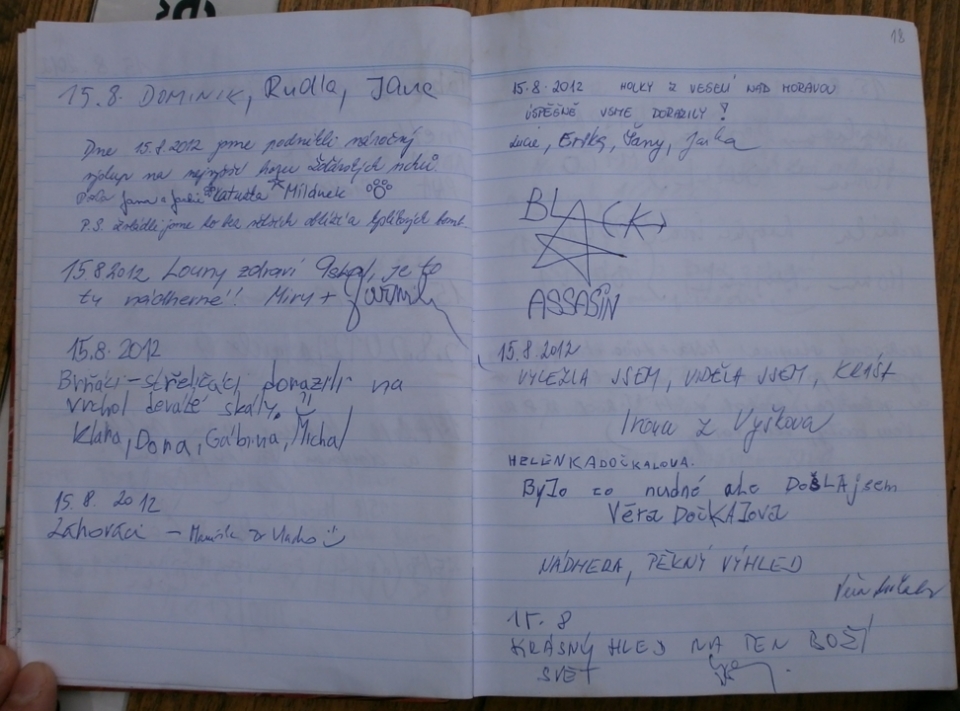 15.8. DOMINIK, Rudla, Jana
Dne 15.8.2012 jsme podnikli náročný
výstup na nejvyšší horu Žďárských vrchů.
Jana a Katuška Milánek
P.S. zvládli jsme to bez
15.8.2012 Louny zdraví 9skal, je to
tu nádherné! Miry +
15.8.2012
Brňáci-střeličáci dorazili na
vrchol deváté skály.
Klára, Dona, Gábina, Michal
15.8. 2012
Záhoráci -
18
15.8.2012 HOLKY Z VESELÍ NAD MORAVOU
ÚSPĚŠNĚ JSME DORAZILY!
Lucie, Erika, Šány, Jarka
BLACK
ASSASIN
15.8.2012
VYLEZLA JSEM, VIDĚLA JSEM,
Ivona z Vyškova
HELENKADOČKALOVA.
Bylo to nudné ale DoŠLAjsem
Věra DočKAlova
NÁDHERA, PĚKNÝ VÝHLED
15.8
KRÁSNÝ HLED NA TEN BOŽÍ
SVET